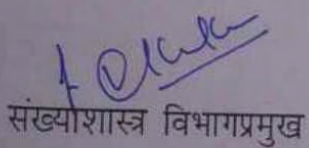 संख्याशास्त्र विभागप्रमुख